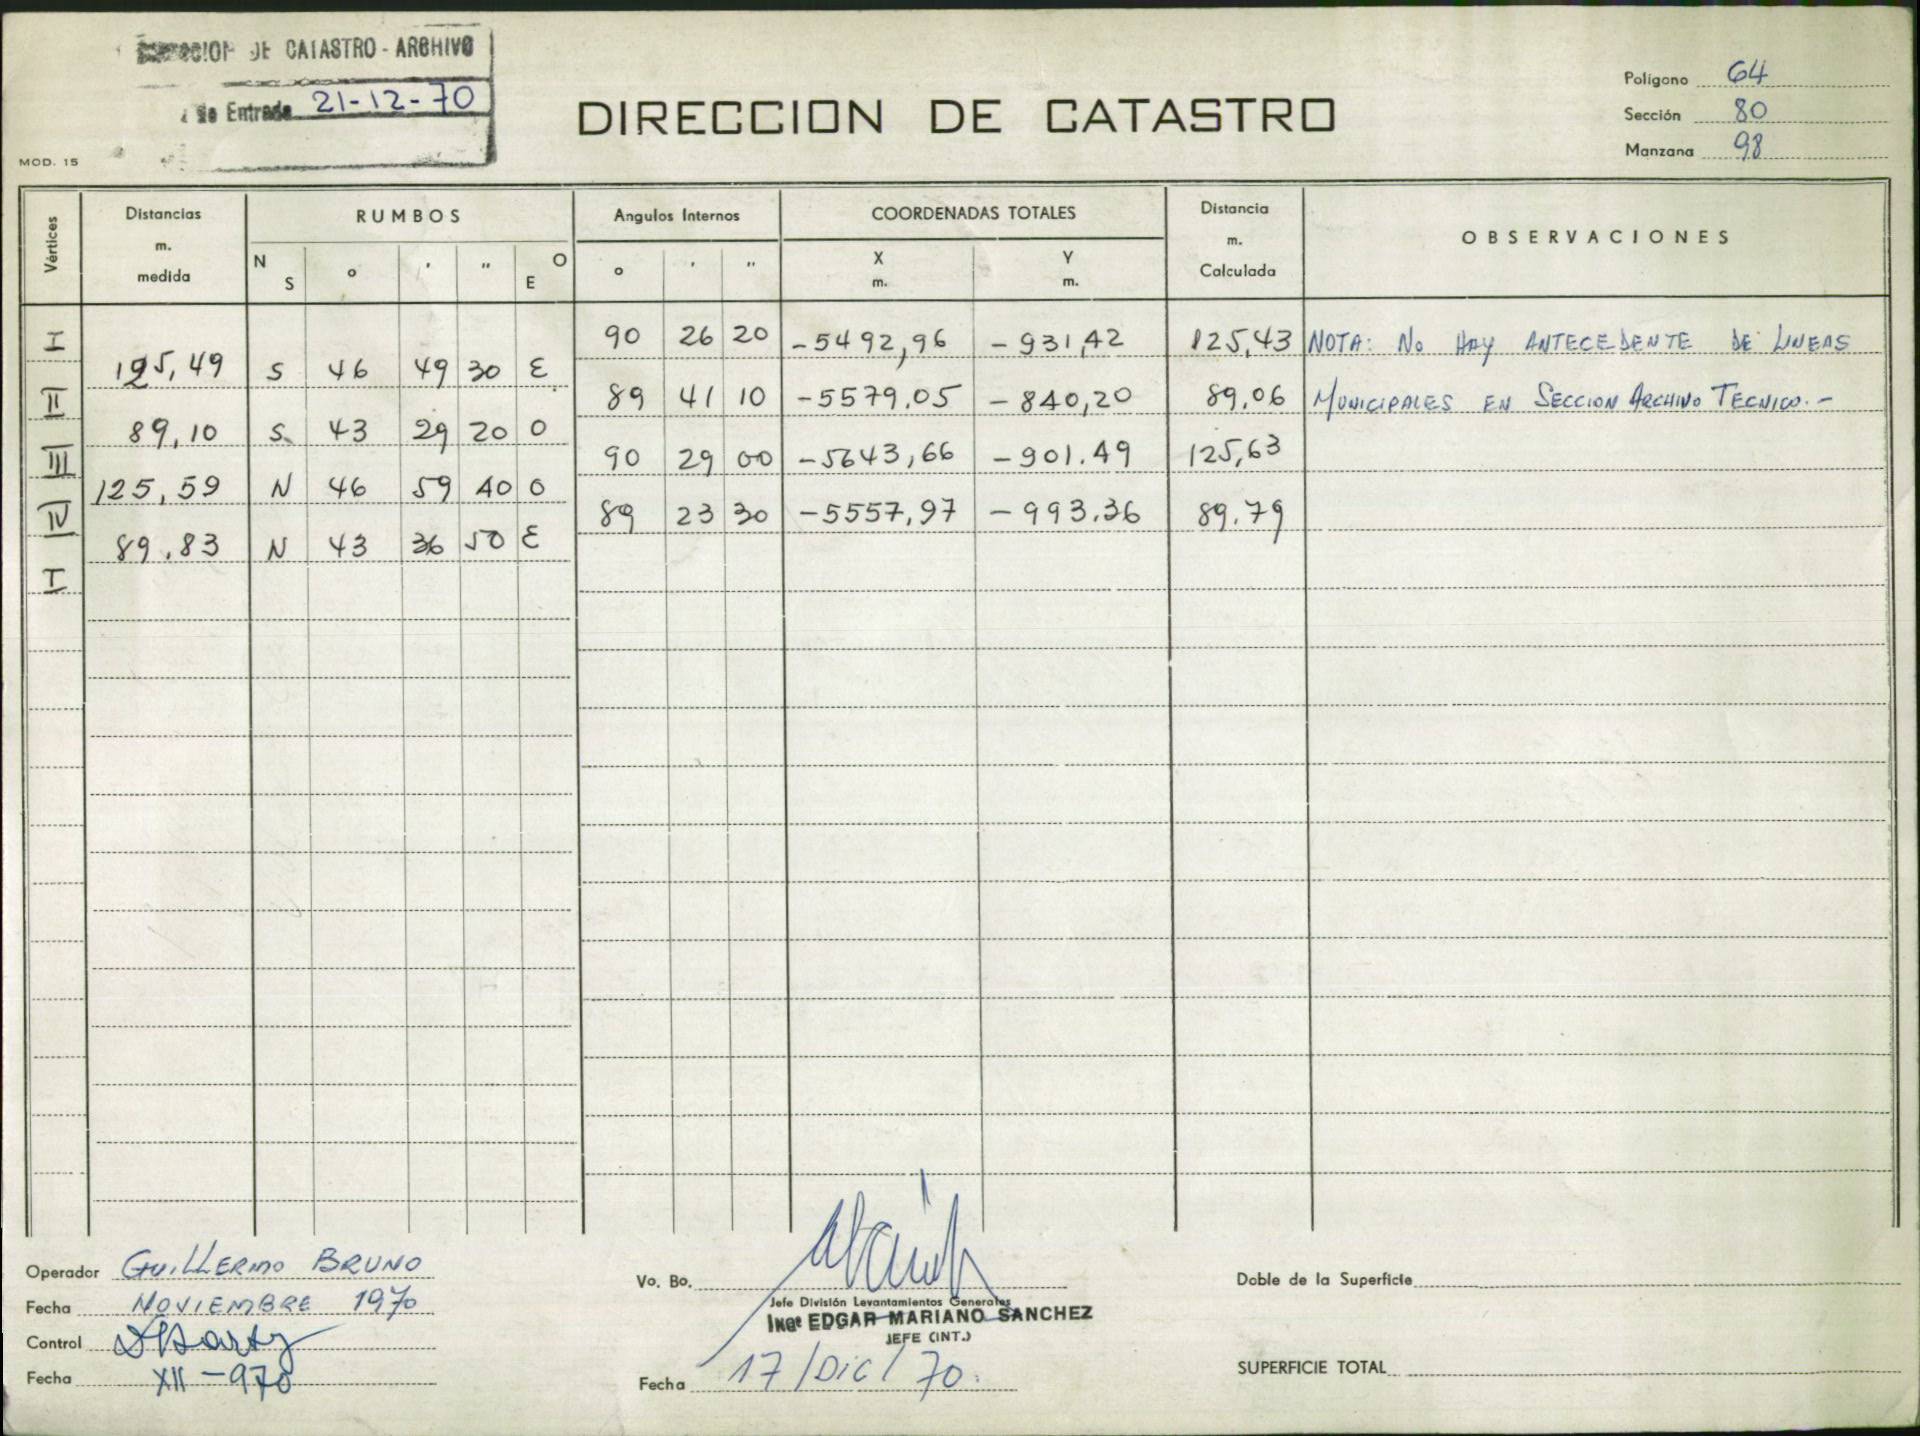 DE CATASTRO - ARCHIVO
de Entrada 21-12-70
MOD. 15
DIRECCION DE CATASTRO
Polígono 64
Sección 80
Manzana 98
Vértices
Distancias m. medida
RUMBOS
N S ° ' " O E
Angulos Internos
° ' "
COORDENADAS TOTALES
X m. Y m.
Distancia m. Calculada
OBSERVACIONES
I 90 26 20 -5492,96 -931,42 125,43 NOTA: No HAY ANTECEDENTE DE LINEAS
125,49 S 46 49 30 E
II 89 41 10 -5579.05 -840,20 89,06 MUNICIPALES EN SECCION ARCHIVO TECNICO.-
89,10 S 43 29 20 O
III 90 29 00 -5643,66 -901.49 125,63
125,59 N 46 59 40 O
IV 89 23 30 -5557,97 -993.36 89.79
89.83 N 43 36 50 E
I
Operador GUILLERMO BRUNO
Fecha NOVIEMBRE 1970
Control
Fecha XII-970
Vo. Bo.
Jefe División Levantamientos Generales
Ingº EDGAR MARIANO SANCHEZ
JEFE (INT.)
Fecha 17/Dic/70.
Doble de la Superficie
SUPERFICIE TOTAL